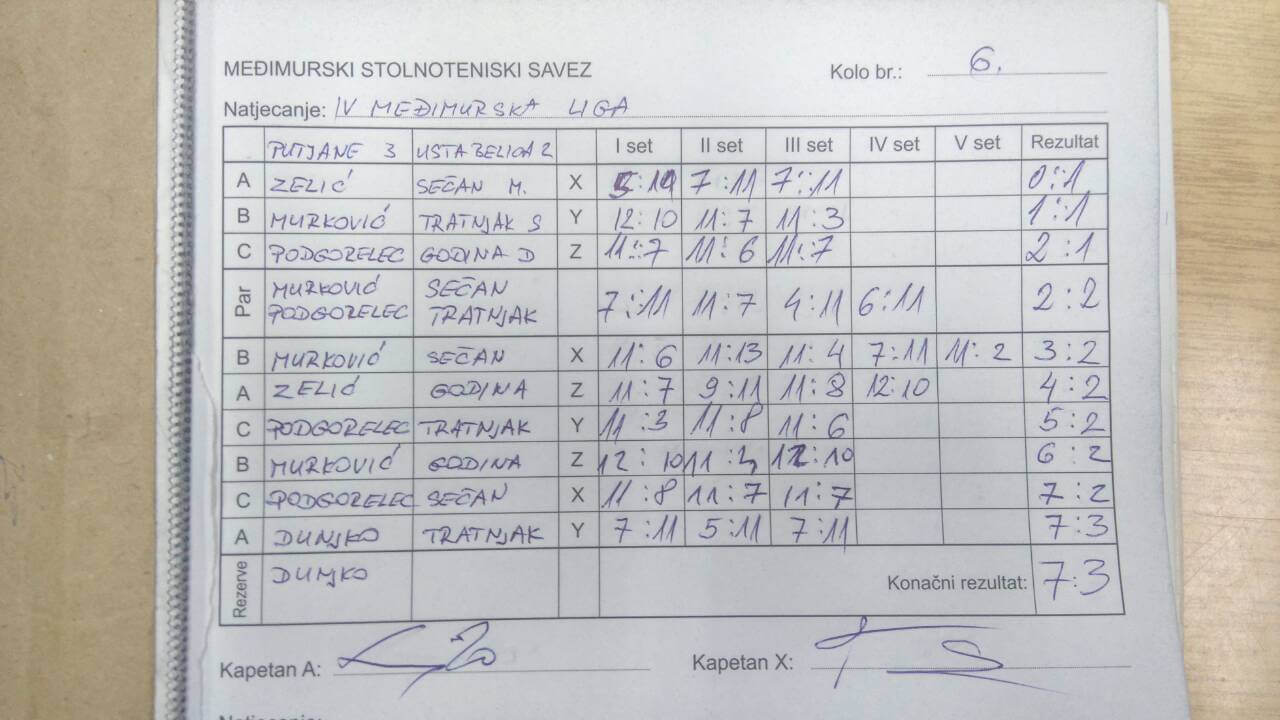 MEĐIMURSKI STOLNOTENISKI SAVEZ Kolo br.: 6.
Natjecanje: IV MEĐIMURSKA LIGA
PUTJANE 3 USTA BELICA 2 I set II set III set IV set V set Rezultat
A ZELIĆ SEČAN M. X 7:11 7:11 0:1
B MURKOVIĆ TRATNJAK S Y 12:10 11:7 11:3 1:1
C PODGORELEC GODINA D Z 11:7 11:6 11:7 2:1
Par MURKOVIĆ SEČAN 7:11 11:7 4:11 6:11 2:2
PODGORELEC TRATNJAK
B MURKOVIĆ SEČAN X 11:6 11:13 11:4 7:11 11:2 3:2
A ZELIĆ GODINA Z 11:7 9:11 11:8 12:10 4:2
C PODGORELEC TRATNJAK Y 11:3 11:8 11:6 5:2
B MURKOVIĆ GODINA Z 12:10 12:10 6:2
C PODGORELEC SEČAN X 11:8 11:7 11:7 7:2
A DUNJKO TRATNJAK Y 7:11 5:11 7:11 7:3
Rezerve DUNJKO Konačni rezultat: 7:3
Kapetan A: Kapetan X: